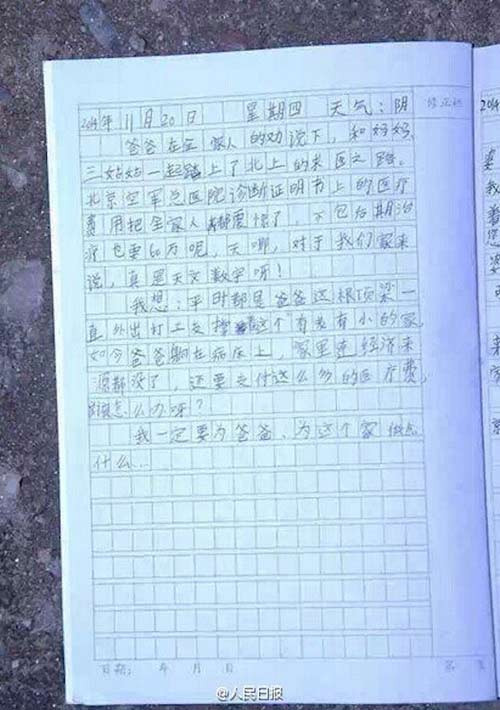 2014年11月20日 星期四 天气:阴
爸爸在全家人的劝说下,和妈妈、
三姑姑一起踏上了北上的求医之路。
北京空军总医院诊断证明书上的医疗
费用把全家人都震惊了,不包后期治
疗也要60万呢,天哪,对于我们家来
说,真是天文数字呀!
我想:平时都是爸爸这根顶梁一
直外出打工支撑着这个有老有小的家,
如今爸爸躺在病床上,家里连经济来
源都没了,还要支付这么多的医疗费,
怎么办呀?
我一定要为爸爸、为这个家做点
什么…
日期: 年 月 日
第 页
修正栏
2014
@人民日报